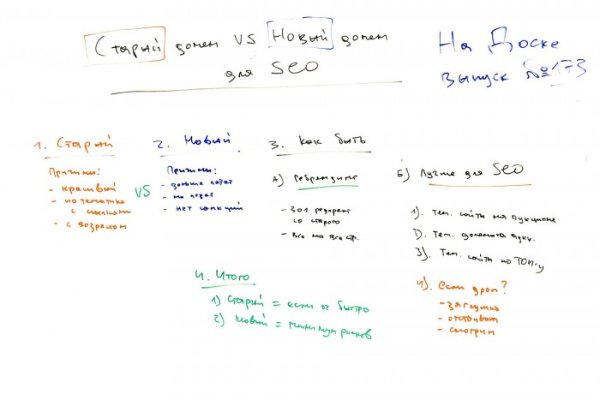 Старый домен VS Новый домен
для SEO
На Доске
выпуск №173
1. Старый
Причины:
- красивый
- по тематике
с ссылками
- с возрастом
VS
2. Новый
Причины:
- дольше
- нет санкций
3. Как быть
А) Ребрендинг
- 301 редирект
со старого
- Все на все стр.
Б) Лучше для SEO
1). Тем. сайты на аукционе
2). Тем. домена аукц.
3). Тем. сайты по ТОП-у
4). Если дроп?
- заглушка
- отстоивать
- смотрим
4. Итого
1) Старый = если ог быстро
2) Новый = минимум рисков